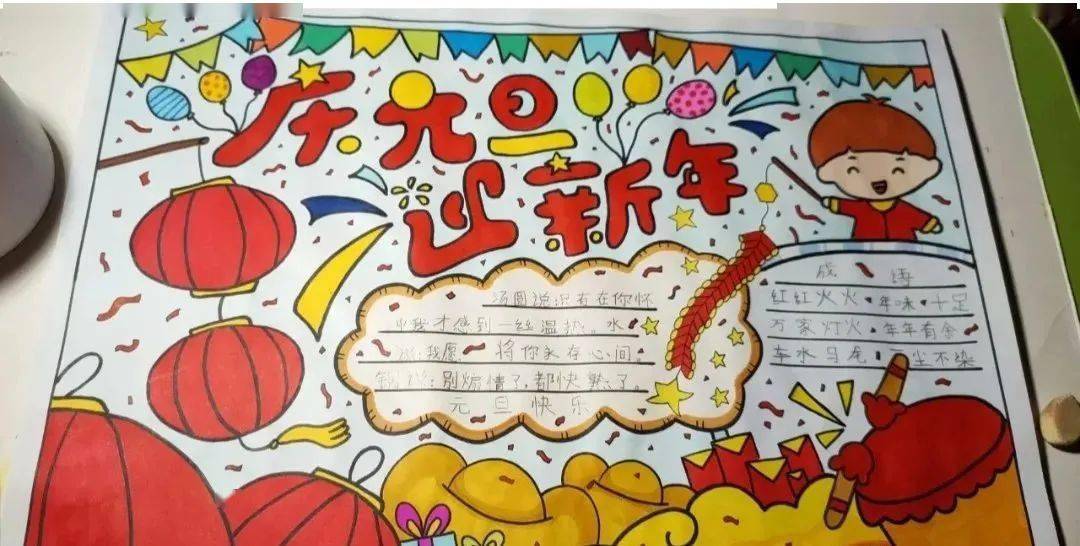 庆元旦
迎新年
汤圆说只有在你怀
我才感到一丝温热。水
我愿 将你永存心间。
锅 说:别煽情了,都快熟了。
元旦快乐
成 语
红红火火 年味十足
万家灯火 年年有余
车水马龙 一尘不染